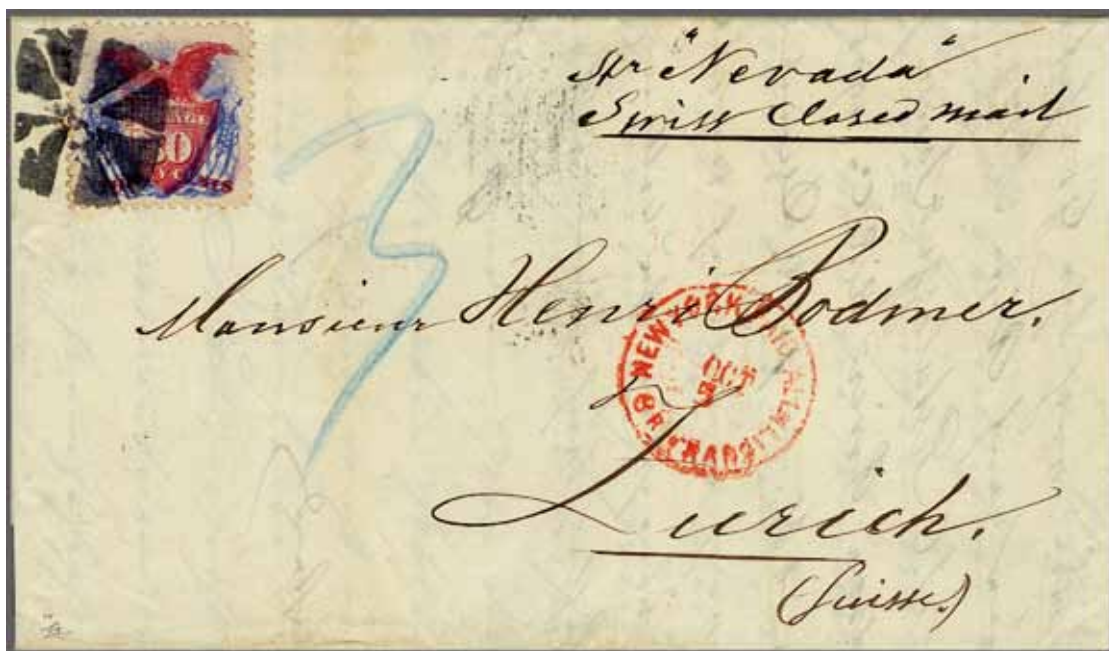 Str "Nevada"
Swiss Closed mail
30
CENTS
3
Monsieur Henri Bodmer,
NEW YORK PAID ALL BR. TRANSIT
OCT
Zurich,
(Suisse.)